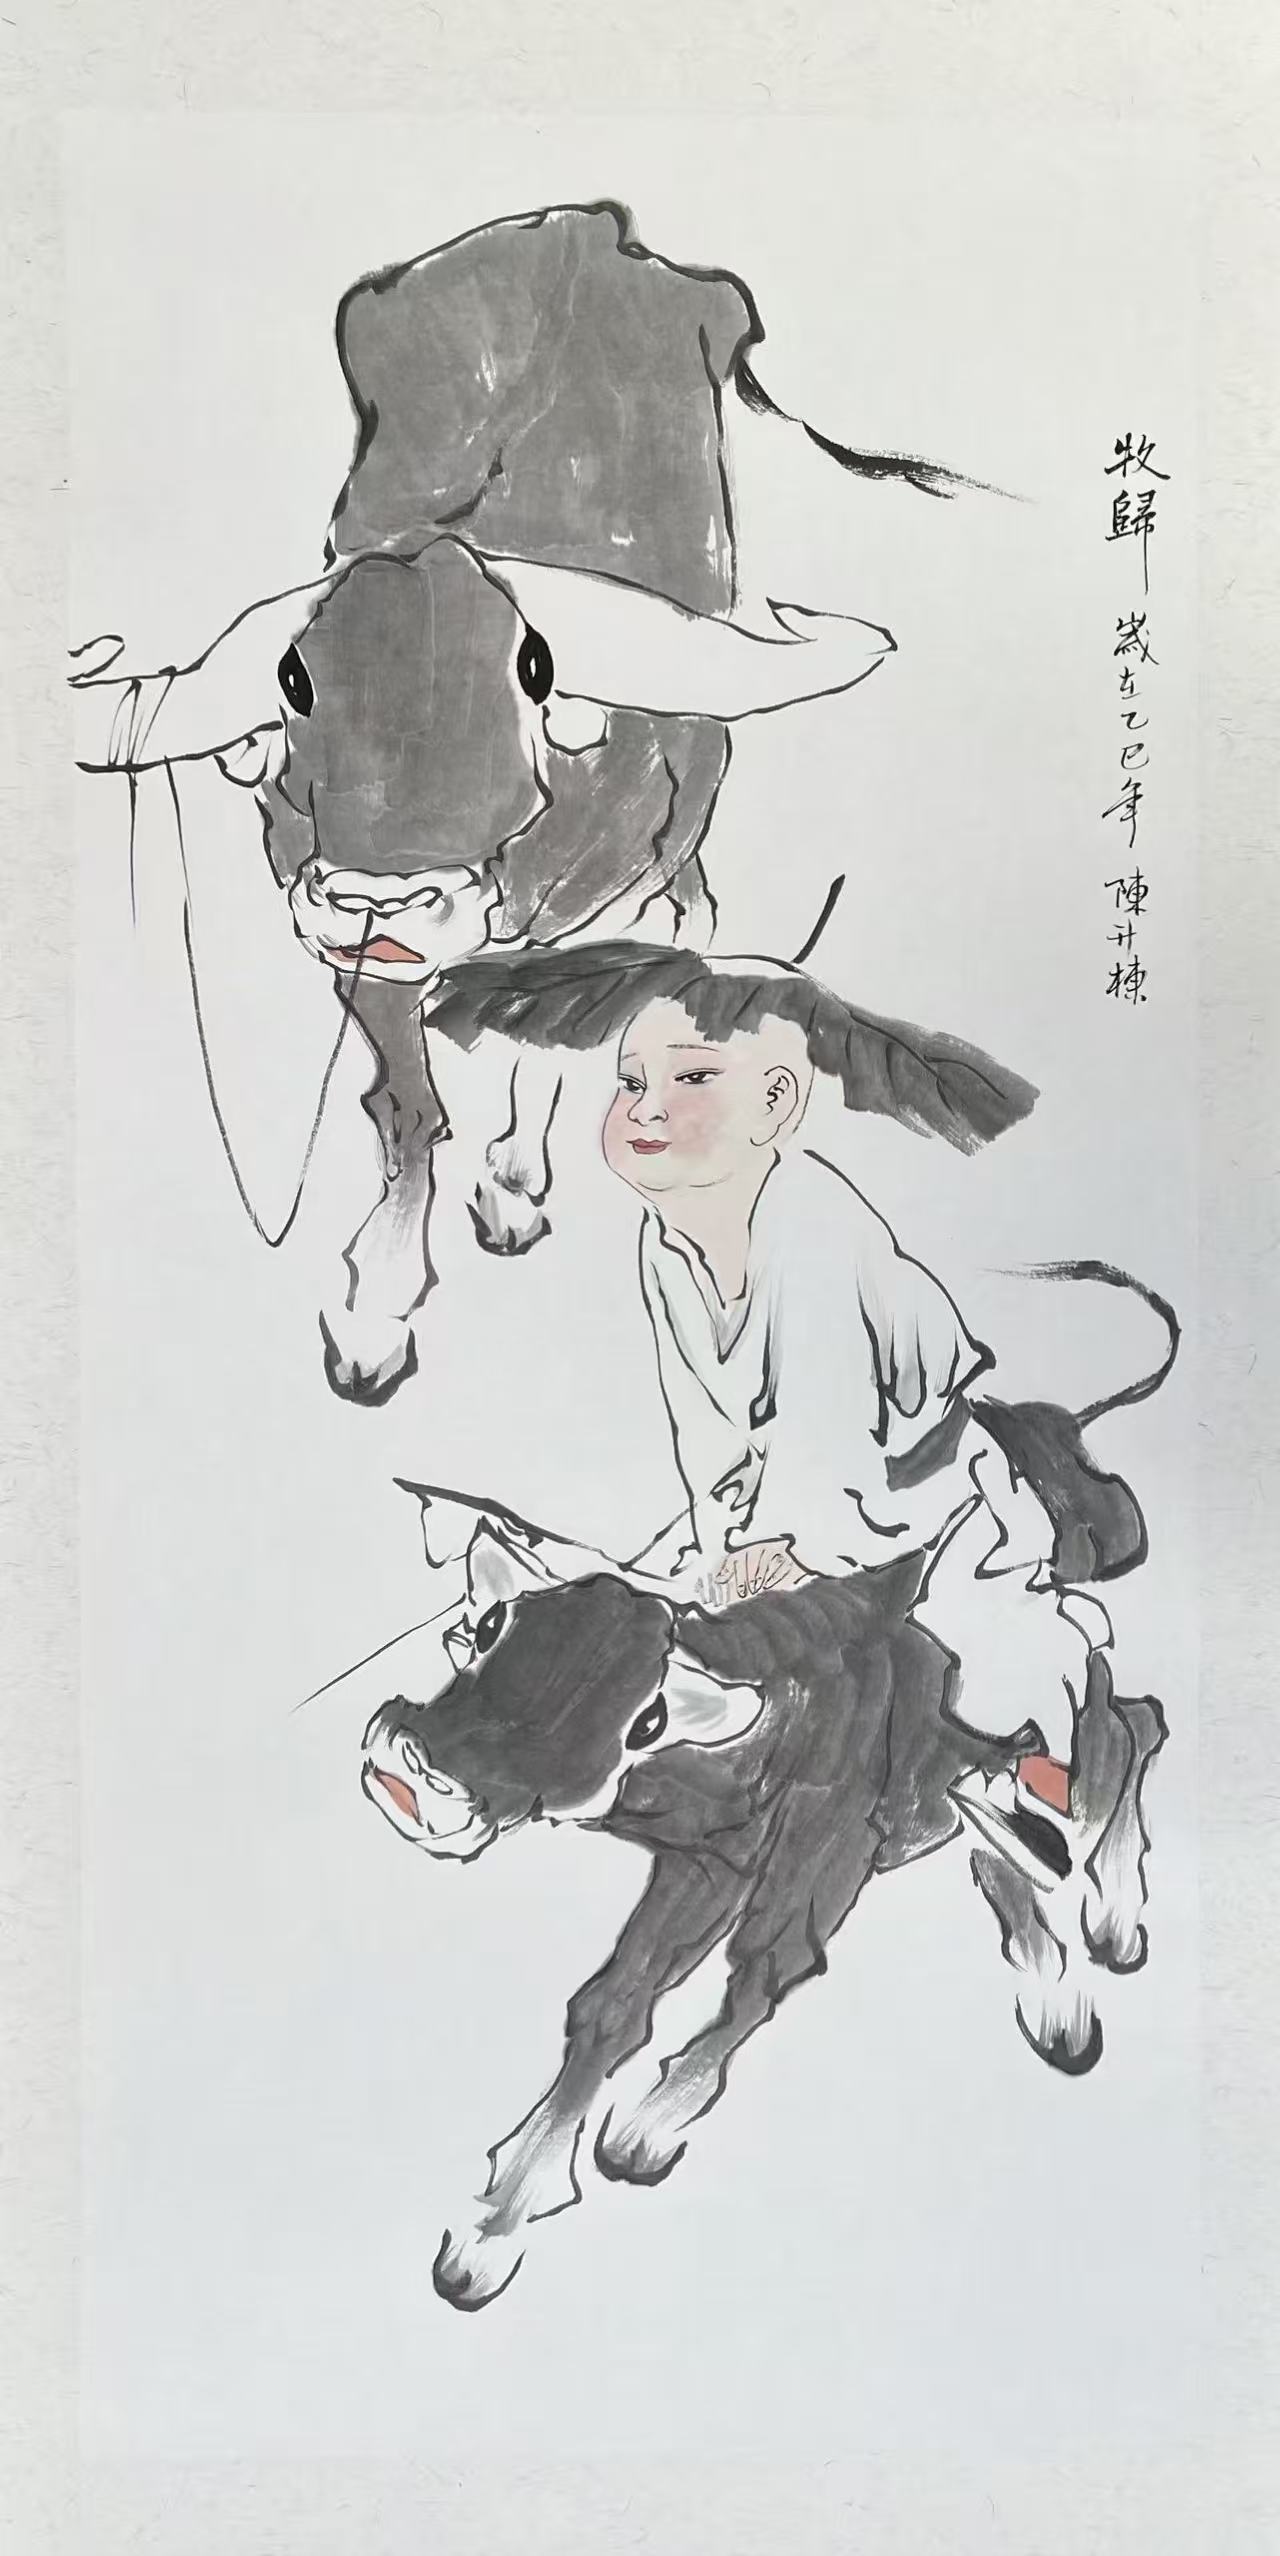 牧歸 歲在乙巳年 陳升棟